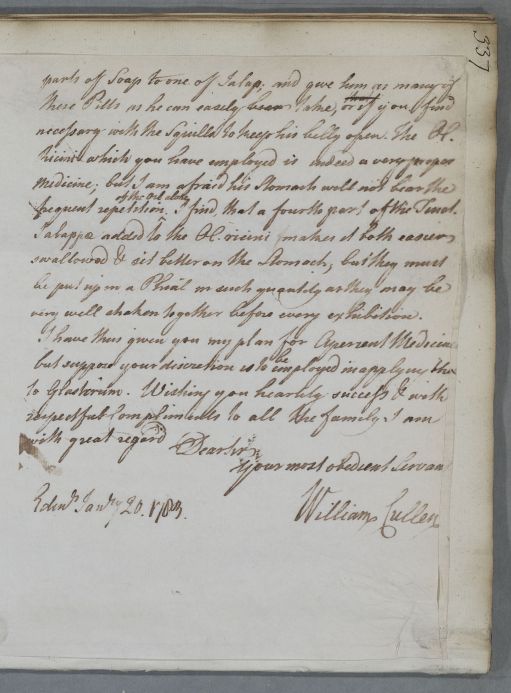 337
parts of Soap to one of Jalap; and give him as many of
these Pills as he can easely bear take, or if you find
necessary with the Squilla to keep his belly open. The Ol.
Ricini which you have employed is indeed a very proper
Medicine; but I am afraid his Stomach will not bear the
frequent repetition of the Oil alone. I find, that a fourth part of the Tinct.
Jalappæ added to the Ol. ricini makes it both easier
swallowed & sit better on the Stomach, but they must
be put up in a Phial in such quantety as they may be
very well shaken together before every exhibition.
I have thus given you my plan for Aperient Medicine
but suppose your discretion is to be employed in applying the
to Glastorum. Wishing you heartily success & with
respectful Compliments to all the family I am
with great regard
Dear Sir
Your most obedient Servan
Edinr. Janry 20. 1783.
William Cullen